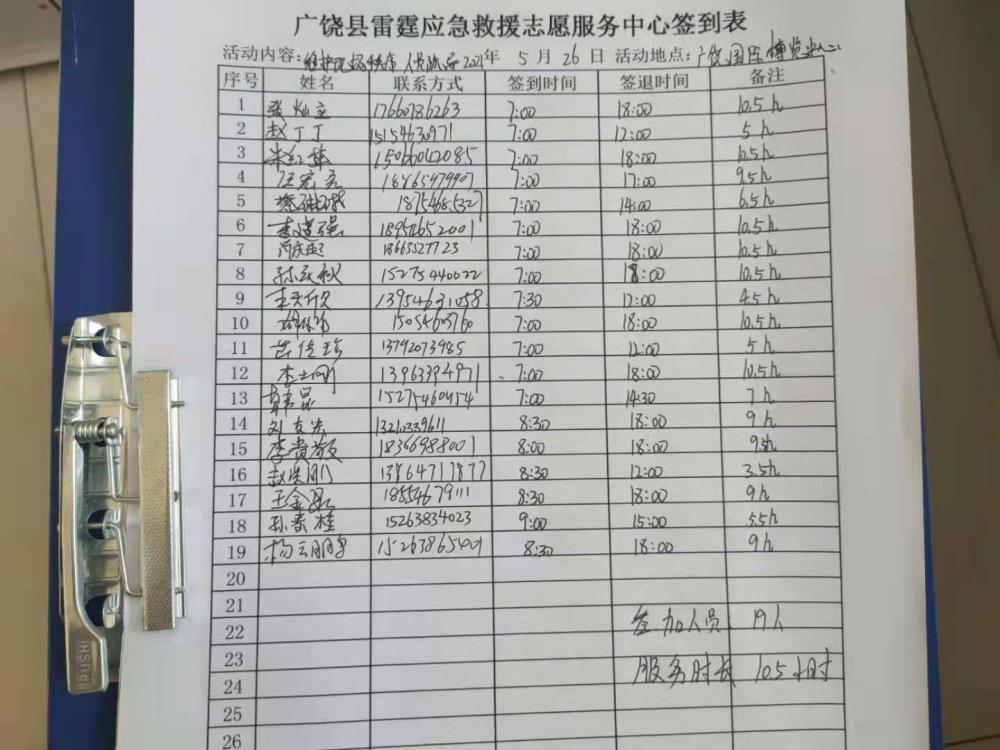 广饶县雷霆应急救援志愿服务中心签到表
活动内容: 维护现场秩序 人员疏导 2021年 5 月 26 日 活动地点: 广饶国际博览中心
序号 姓名 联系方式 签到时间 签退时间 备注
1 张灿立 17660786263 7:00 18:00 10.5h
2 赵丁丁 15154630971 7:00 12:00 5h
3 15066042085 7:00 18:00 10.5h
4 18465479407 7:00 17:00 9.5h
5 7:00 14:00 6.5h
6 李道强 18954652001 7:00 18:00 10.5h
7 18663527723 7:00 18:00 10.5h
8 孙庆秋 15275440022 7:00 18:00 10.5h
9 13954631058 7:30 12:00 4.5h
10 15054603760 7:00 18:00 10.5h
11 13792073985 7:00 12:00 5h
12 李士刚 13963394971 7:00 18:00 10.5h
13 韩昆 15275460454 7:00 14:30 7h
14 刘友发 13210339611 8:30 18:00 9h
15 李贵敬 18366988007 8:00 18:00
16 13864717877 8:30 12:00 3.5h
17 王金磊 18554679111 8:30 18:00 9h
18 孙春桂 15263834023 9:00 15:00 5.5h
19 杨云鹏 15263865401 8:30 18:00 9h
20
21
22 参加人员 19人
23
24 服务时长 105小时
25
26
PUSH